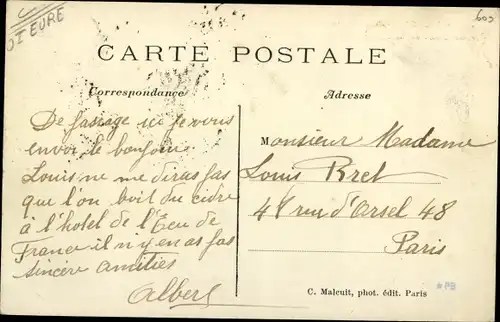 D I EURE
603
CARTE POSTALE
Correspondance
Adresse
De passage ici je vous
envoi le bonjour
Louis ne me diras pas
que l'on boit du cidre
à l'hotel de l'Ecu de
France il n'y en as pas
sincère amitiés
Albert
Monsieur Madame
Louis Bret
48 rue d'Orsel 48
Paris
C. Malcuit, phot. édit. Paris